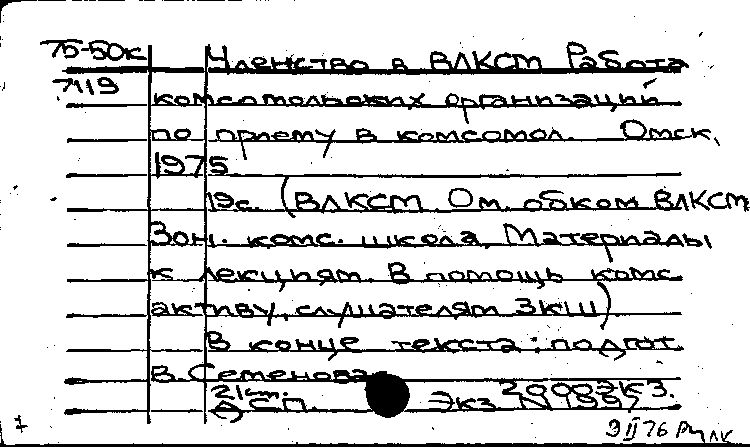 75-50к Членство в ВЛКСМ Работа
7119 комсомольских организаций
по приему в комсомол. Омск,
1975.
19с. (ВЛКСМ Ом. обком ВЛКСМ
Зон. комс. школа. Материалы
к лекциям. В помощь комс.
активу, слушателям ЗКШ)
В конце текста: подгот.
В. Семенова
21см. 2000экз.
СП. Экз
9 II 76